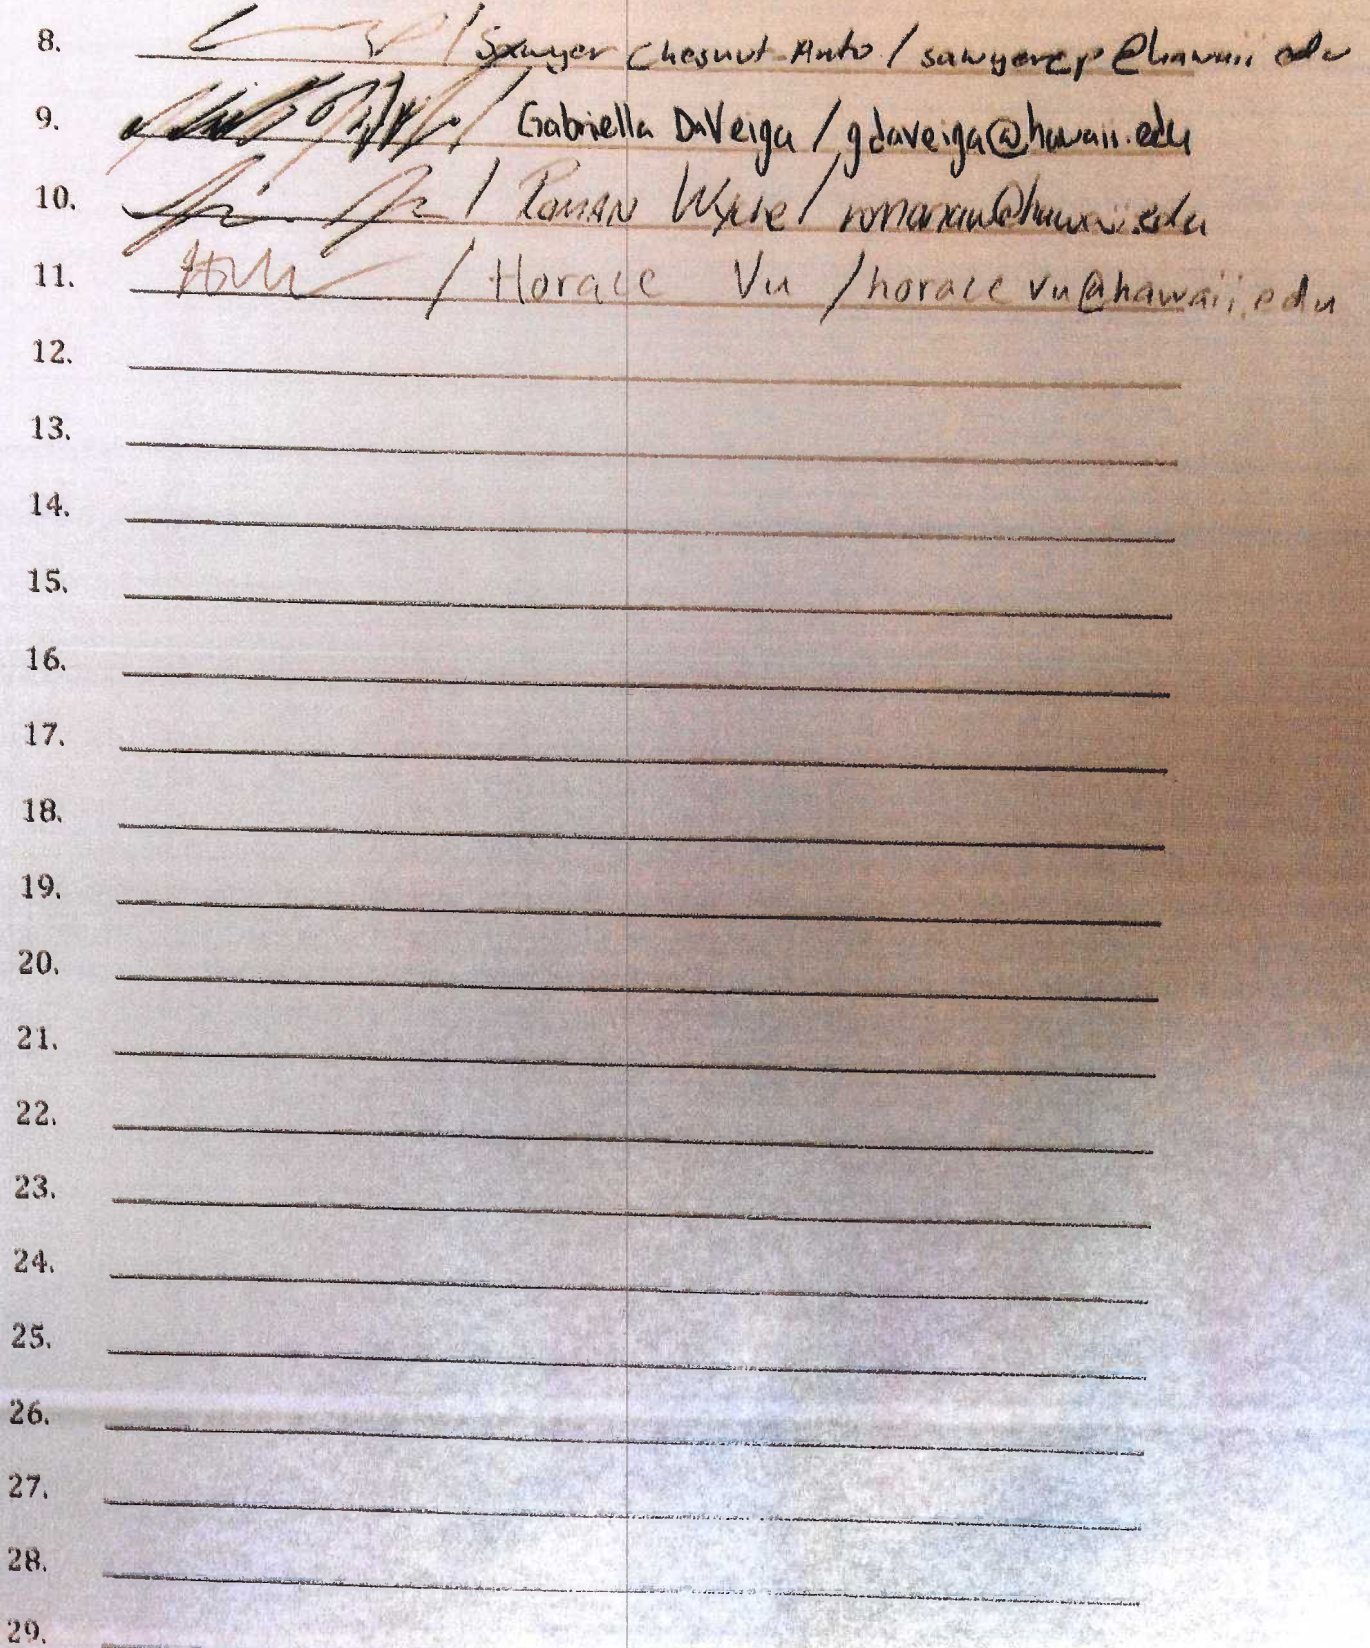 8. / Sawyer Chesnut-Anto / sawyercp@hawaii.edu
9. / Gabriella DaVeiga / gdaveiga@hawaii.edu
10. / ROMAN / @hawaii.edu
11. / Horace Vu / horacevu@hawaii.edu
12.
13.
14.
15.
16.
17.
18.
19.
20.
21.
22.
23.
24.
25.
26.
27.
28.
29.